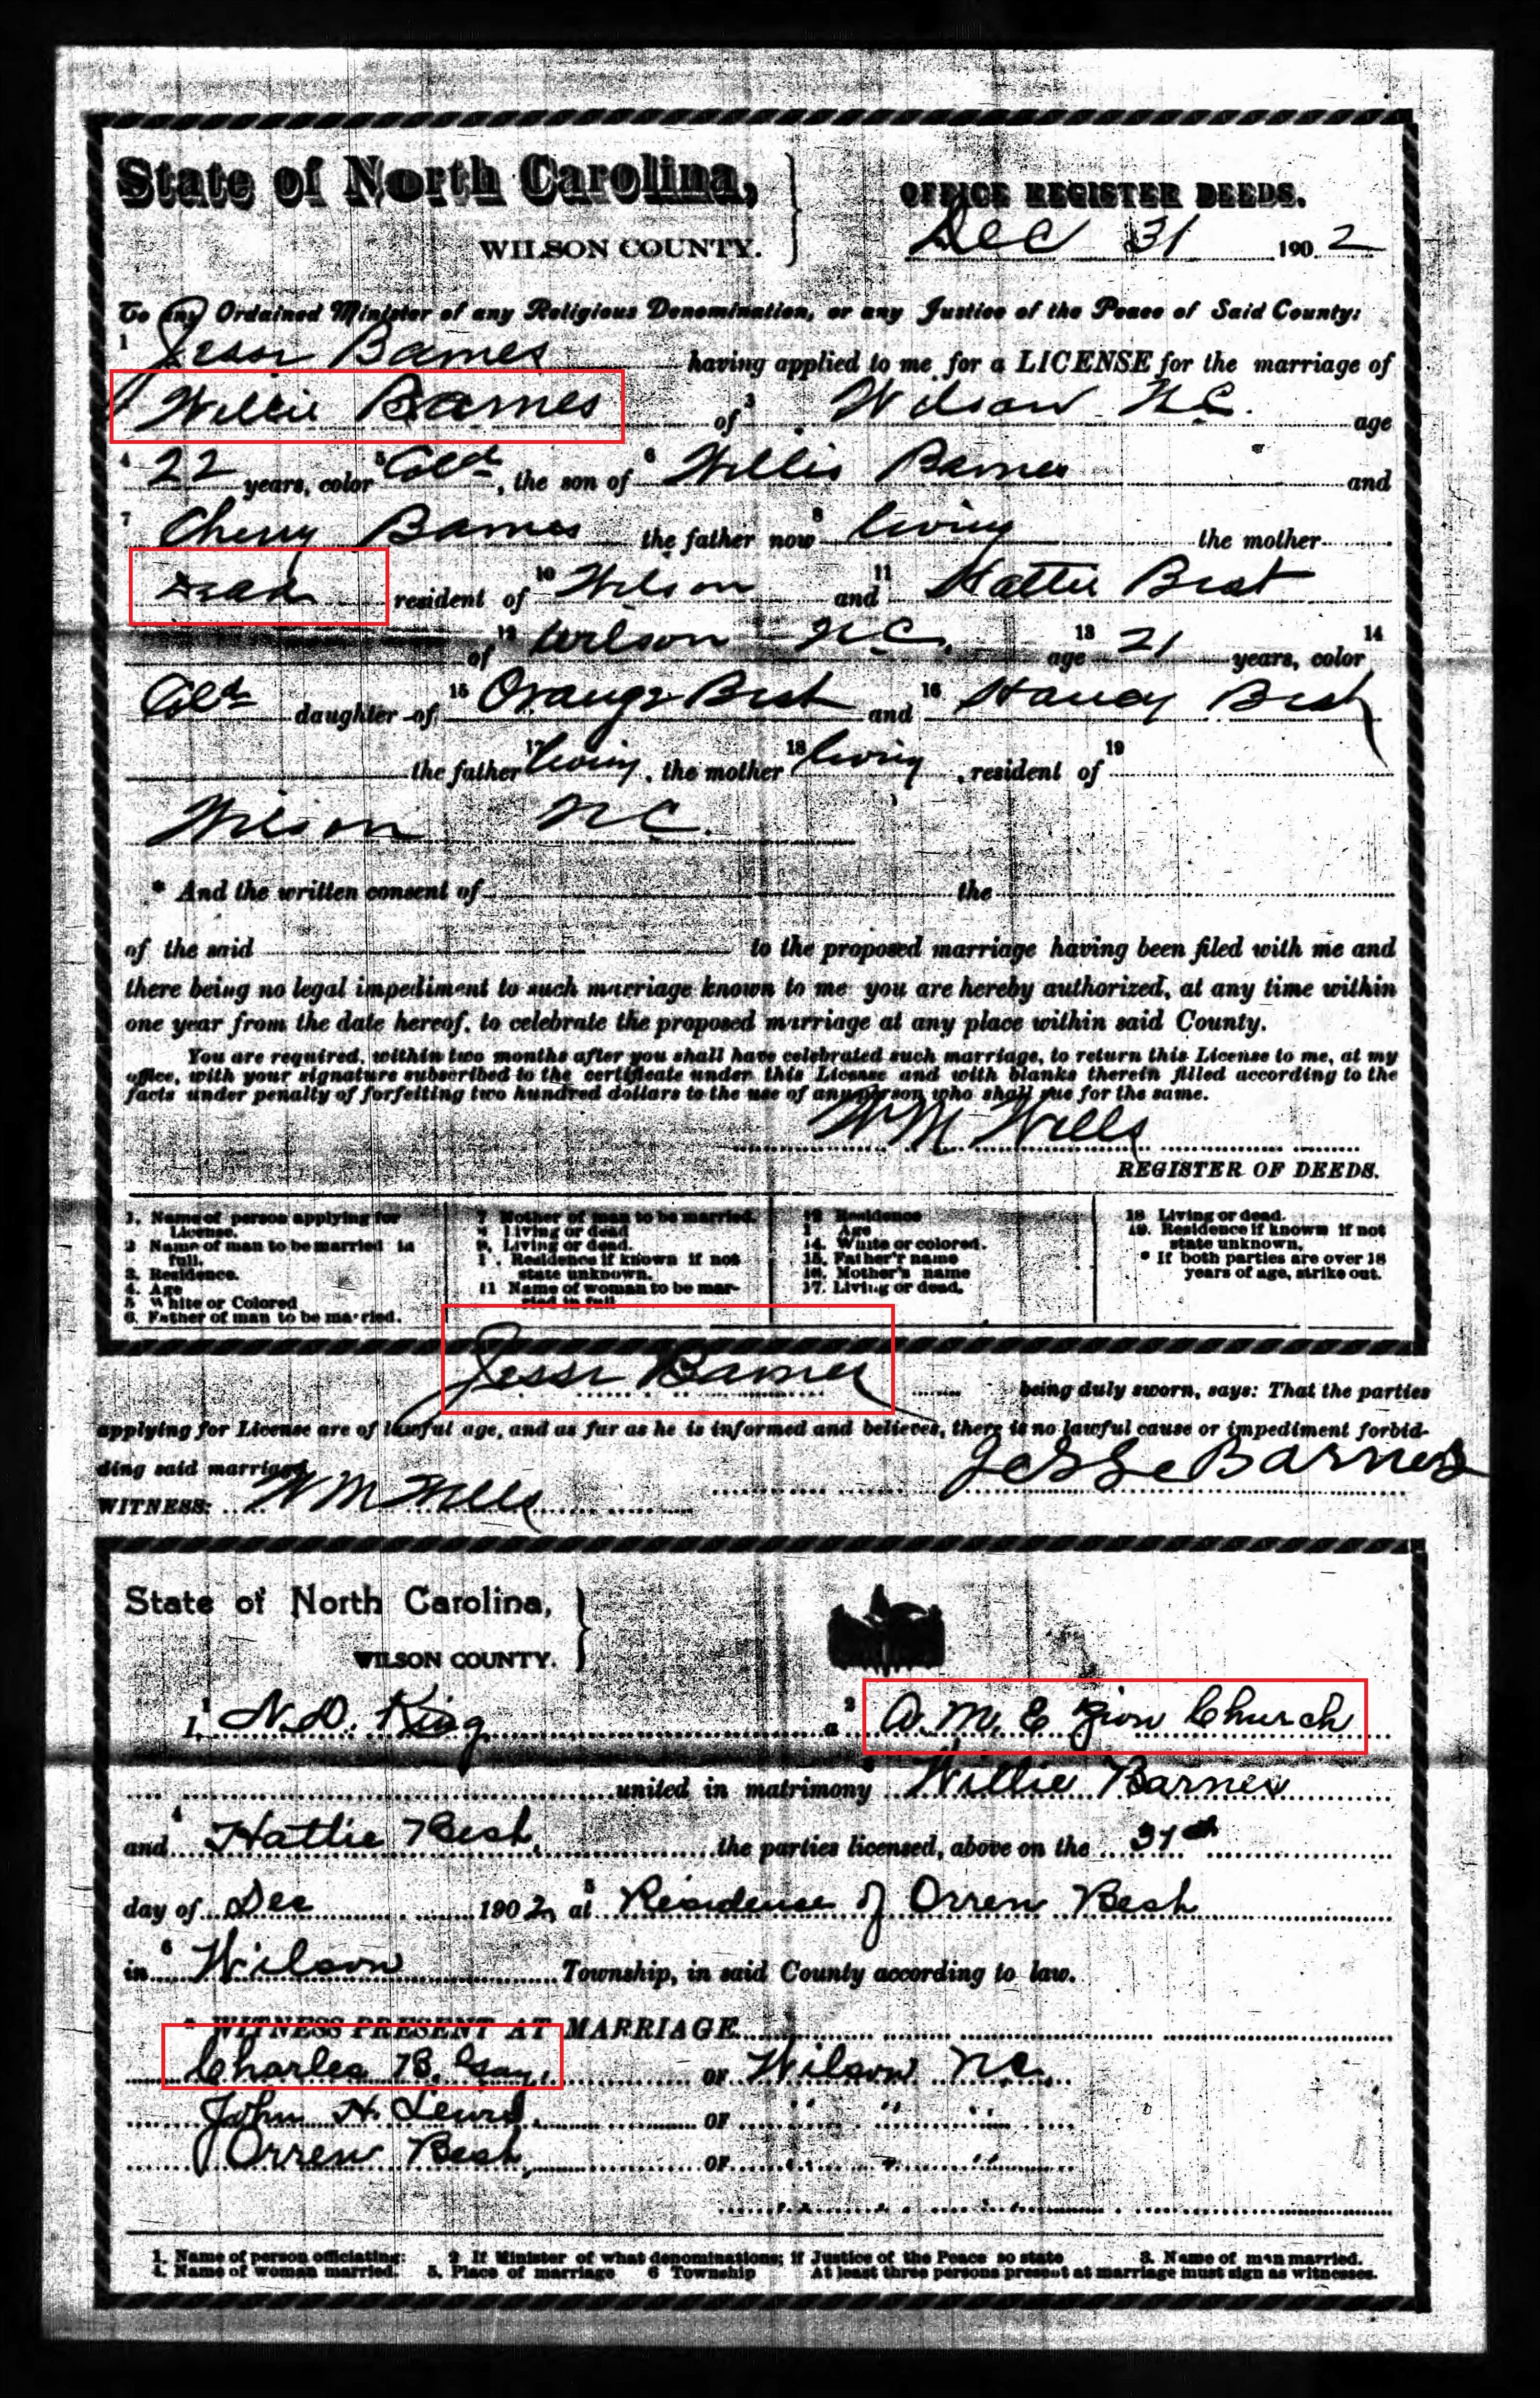 State of North Carolina,
WILSON COUNTY.
OFFICE REGISTER DEEDS.
Dec 31 1902
To any Ordained Minister of any Religious Denomination, or any Justice of the Peace of Said County:
1 Jesse Barnes having applied to me for a LICENSE for the marriage of
Willie Barnes of 3 Wilson N.C. age
4 22 years, color 5 Cold, the son of 6 Willis Barnes and
7 Cherry Barnes the father now 8 living the mother
Dead resident of 10 Wilson and 11 Hattie Best
of 12 Wilson N.C. age 13 21 years, color 14
Cold daughter of 15 Orange Best and 16 Hancy Best
the father 17 living, the mother 18 living, resident of 19
Wilson N.C.
* And the written consent of the
of the said to the proposed marriage having been filed with me and
there being no legal impediment to such marriage known to me you are hereby authorized, at any time within
one year from the date hereof, to celebrate the proposed marriage at any place within said County.
You are required, within two months after you shall have celebrated such marriage, to return this License to me, at my
office, with your signature subscribed to the certificate under this License and with blanks therein filled according to the
facts under penalty of forfeiting two hundred dollars to the use of any person who shall sue for the same.
WM Wells
REGISTER OF DEEDS.
1. Name of person applying for
License.
2 Name of man to be married in
full.
3. Residence.
4. Age
5 White or Colored
6. Father of man to be married.
7 Mother of man to be married.
Living or dead
9. Living or dead.
Residence if known if not
state unknown.
11 Name of woman to be mar-
ried in full
12 Residence
Age
14. White or colored.
15. Father'r name
16. Mother's name
17. Living or dead.
18 Living or dead.
19. Residence if known if not
state unknown.
* If both parties are over 18
years of age, strike out.
Jesse Barnes being duly sworn, says: That the parties
applying for License are of lawful age, and as far as he is informed and believes, there is no lawful cause or impediment forbid-
ding said marriage
Jesse Barnes
WITNESS: WM Wells
State of North Carolina,
WILSON COUNTY.
I, 1 N.D. King a 2 A. M. E Zion Church
united in matrimony 3 Willie Barnes
and 4 Hattie Best, the parties licensed, above on the 31st
day of Dec 1902, at 5 Residence of Orren Best
in 6 Wilson Township, in said County according to law.
* WITNESS PRESENT AT MARRIAGE
Charles B. Gay, OF Wilson N.C.
John H. Lewis, OF " " "
Orren Best, OF " "
1. Name of person officiating: 2 If Minister of what denominations; if Justice of the Peace so state 3. Name of man married.
4. Name of woman married. 5. Place of marriage 6 Township At least three persons present at marriage must sign as witnesses.